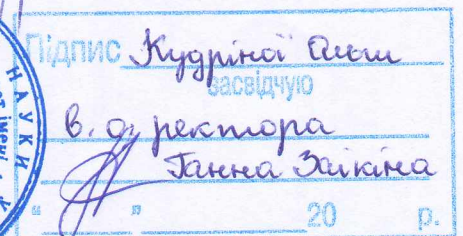 Підпис Кудріної
засвідчую
в. о. ректора
Ганна Заікіна
“ ” 20 р.
НАУКИ
імені